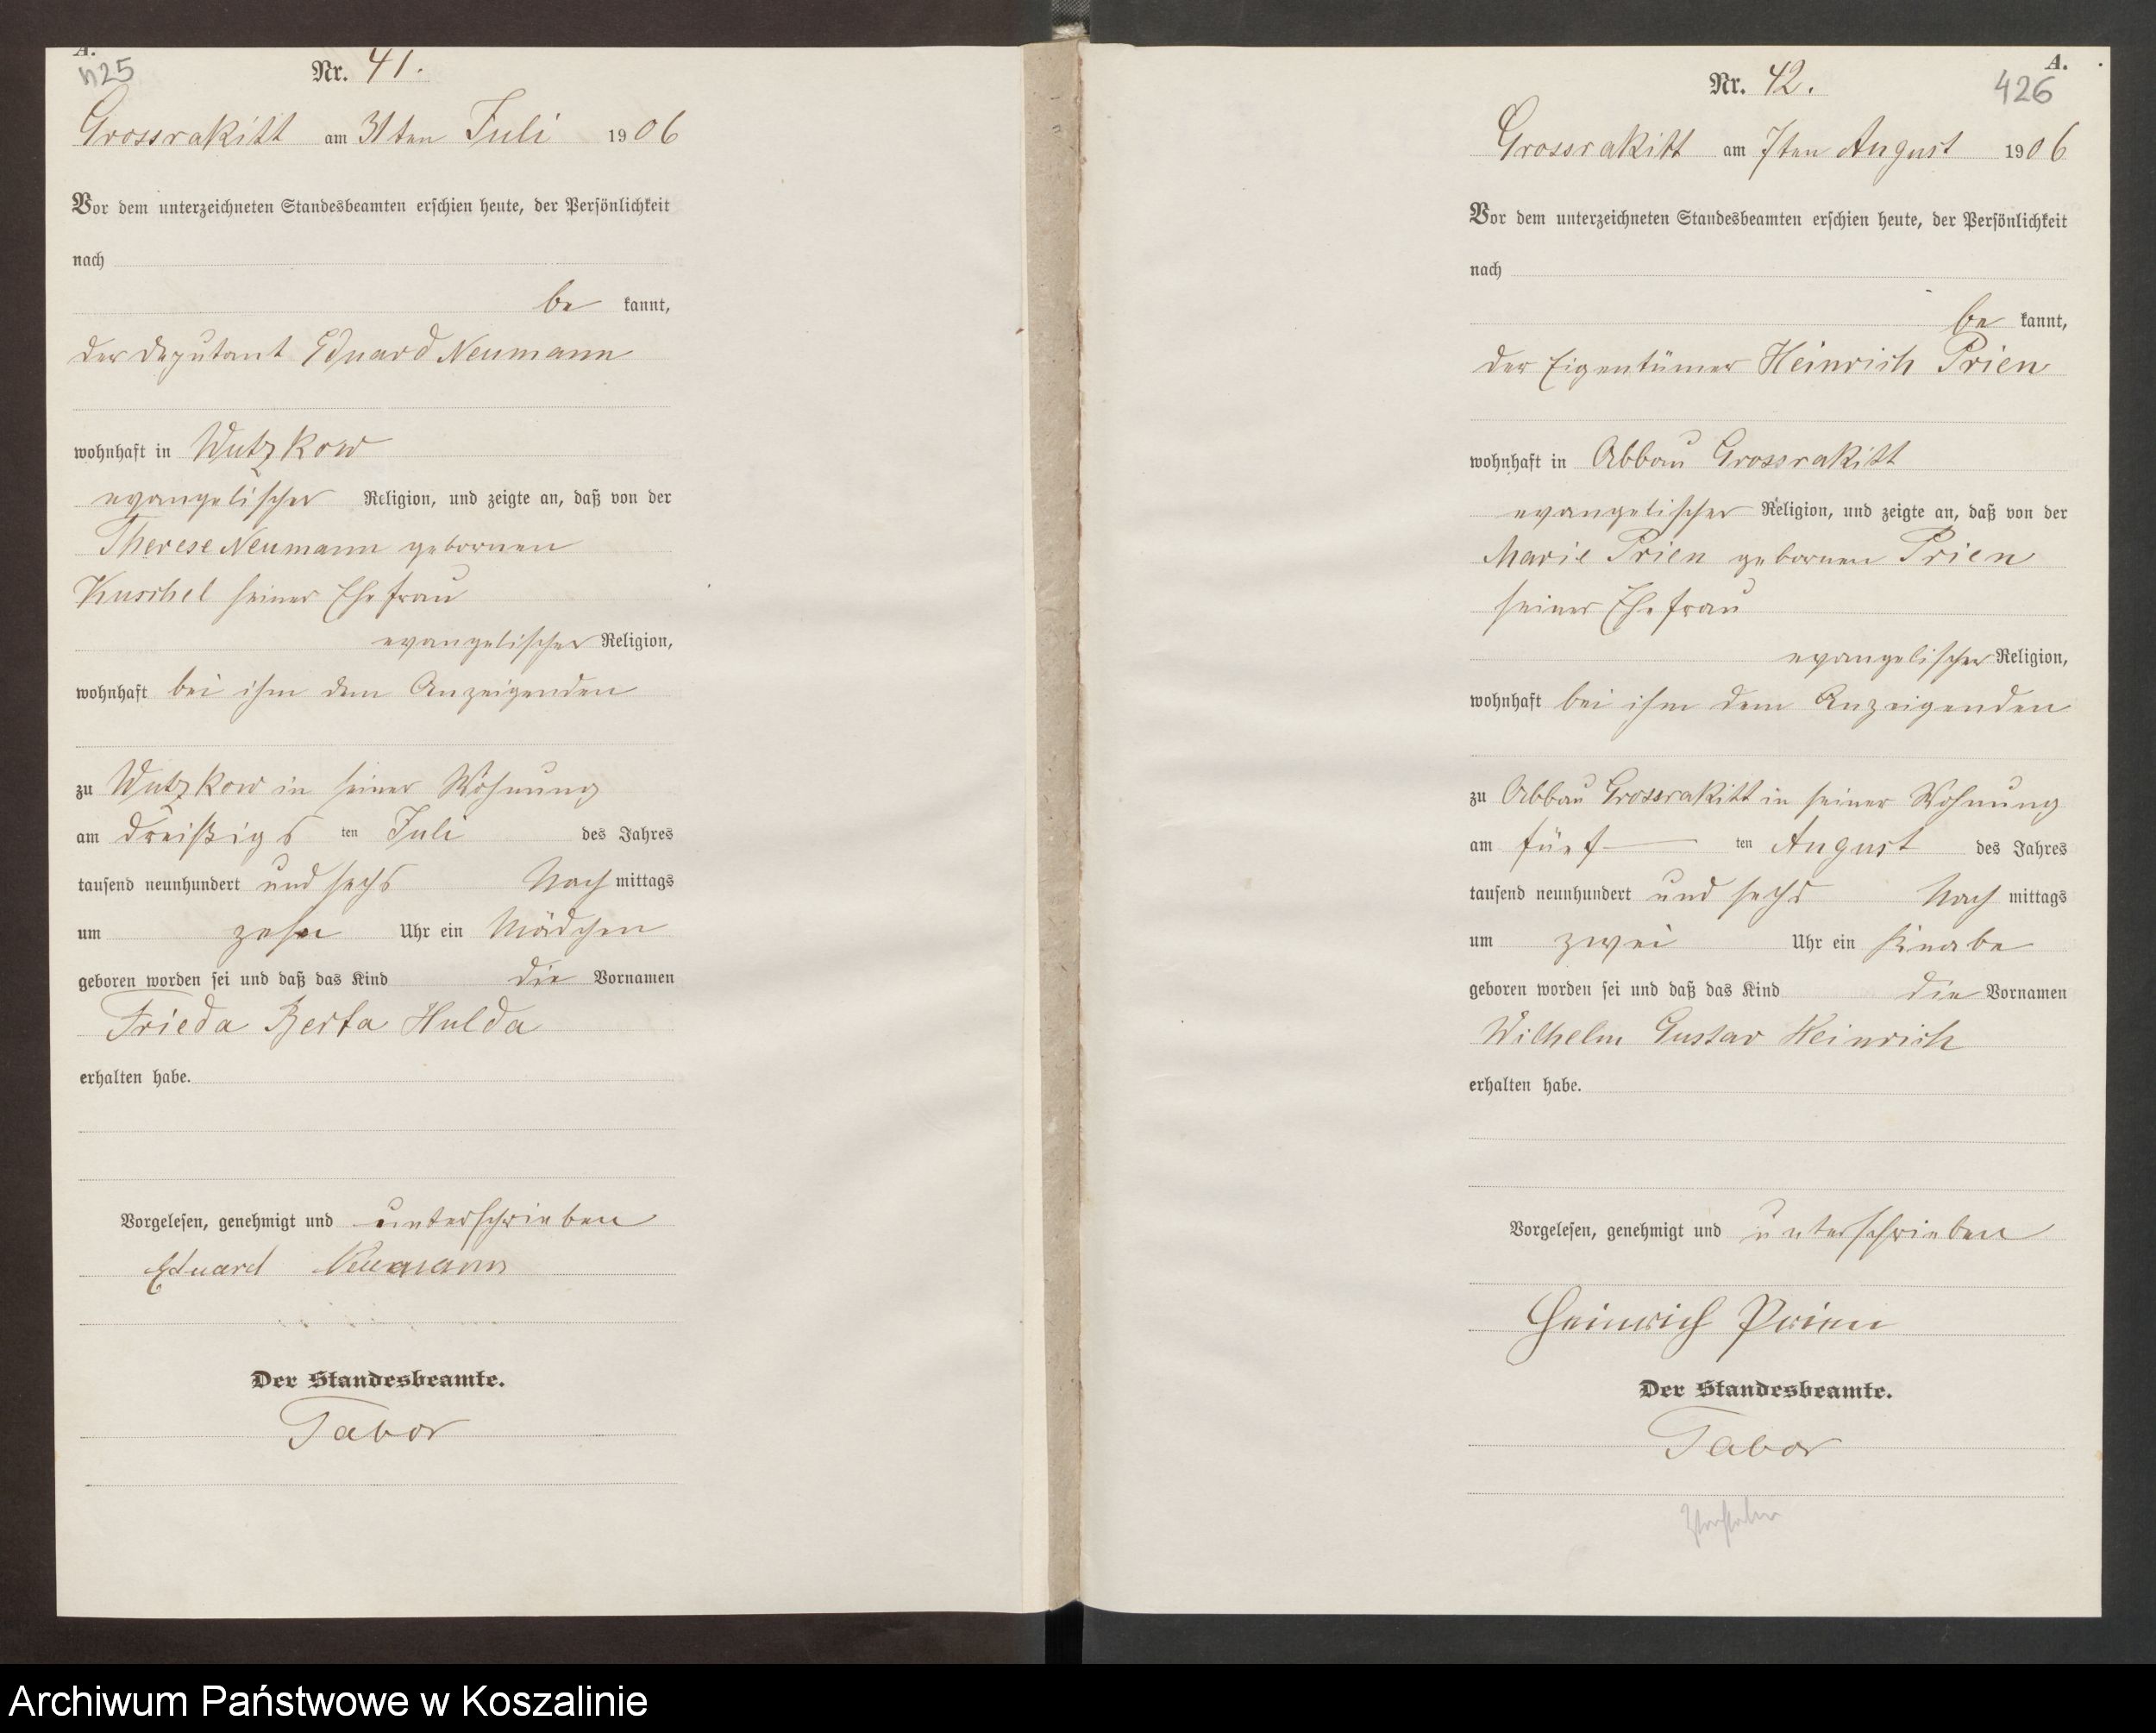 A.
425
Nr. 41.
Grossrakitt am 31ten Juli 1906
Vor dem unterzeichneten Standesbeamten erschien heute, der Persönlichkeit
nach
be kannt,
der Deputant Eduard Neumann
wohnhaft in Wutzkow
evangelischer Religion, und zeigte an, daß von der
Therese Neumann gebornen
Kuschel seiner Ehefrau
evangelischer Religion,
wohnhaft bei ihm dem Anzeigenden
zu Wutzkow in seiner Wohnung
am dreißigs ten Juli des Jahres
tausend neunhundert und sechs Nach mittags
um zehn Uhr ein Mädchen
geboren worden sei und daß das Kind die Vornamen
Frieda Berta Hulda
erhalten habe.
Vorgelesen, genehmigt und unterschrieben
Eduard Neumann
Der Standesbeamte.
Tabor
A.
426
Nr. 42.
Grossrakitt am 7ten August 1906
Vor dem unterzeichneten Standesbeamten erschien heute, der Persönlichkeit
nach
be kannt,
der Eigentümer Heinrich Prien
wohnhaft in Abbau Grossrakitt
evangelischer Religion, und zeigte an, daß von der
Marie Prien gebornen Prien
seiner Ehefrau
evangelischer Religion,
wohnhaft bei ihm dem Anzeigenden
zu Abbau Grossrakitt in seiner Wohnung
am fünf ten August des Jahres
tausend neunhundert und sechs Nach mittags
um zwei Uhr ein Knabe
geboren worden sei und daß das Kind die Vornamen
Wilhelm Gustav Heinrich
erhalten habe.
Vorgelesen, genehmigt und unterschrieben
Heinrich Prien
Der Standesbeamte.
Tabor
Archiwum Państwowe w Koszalinie